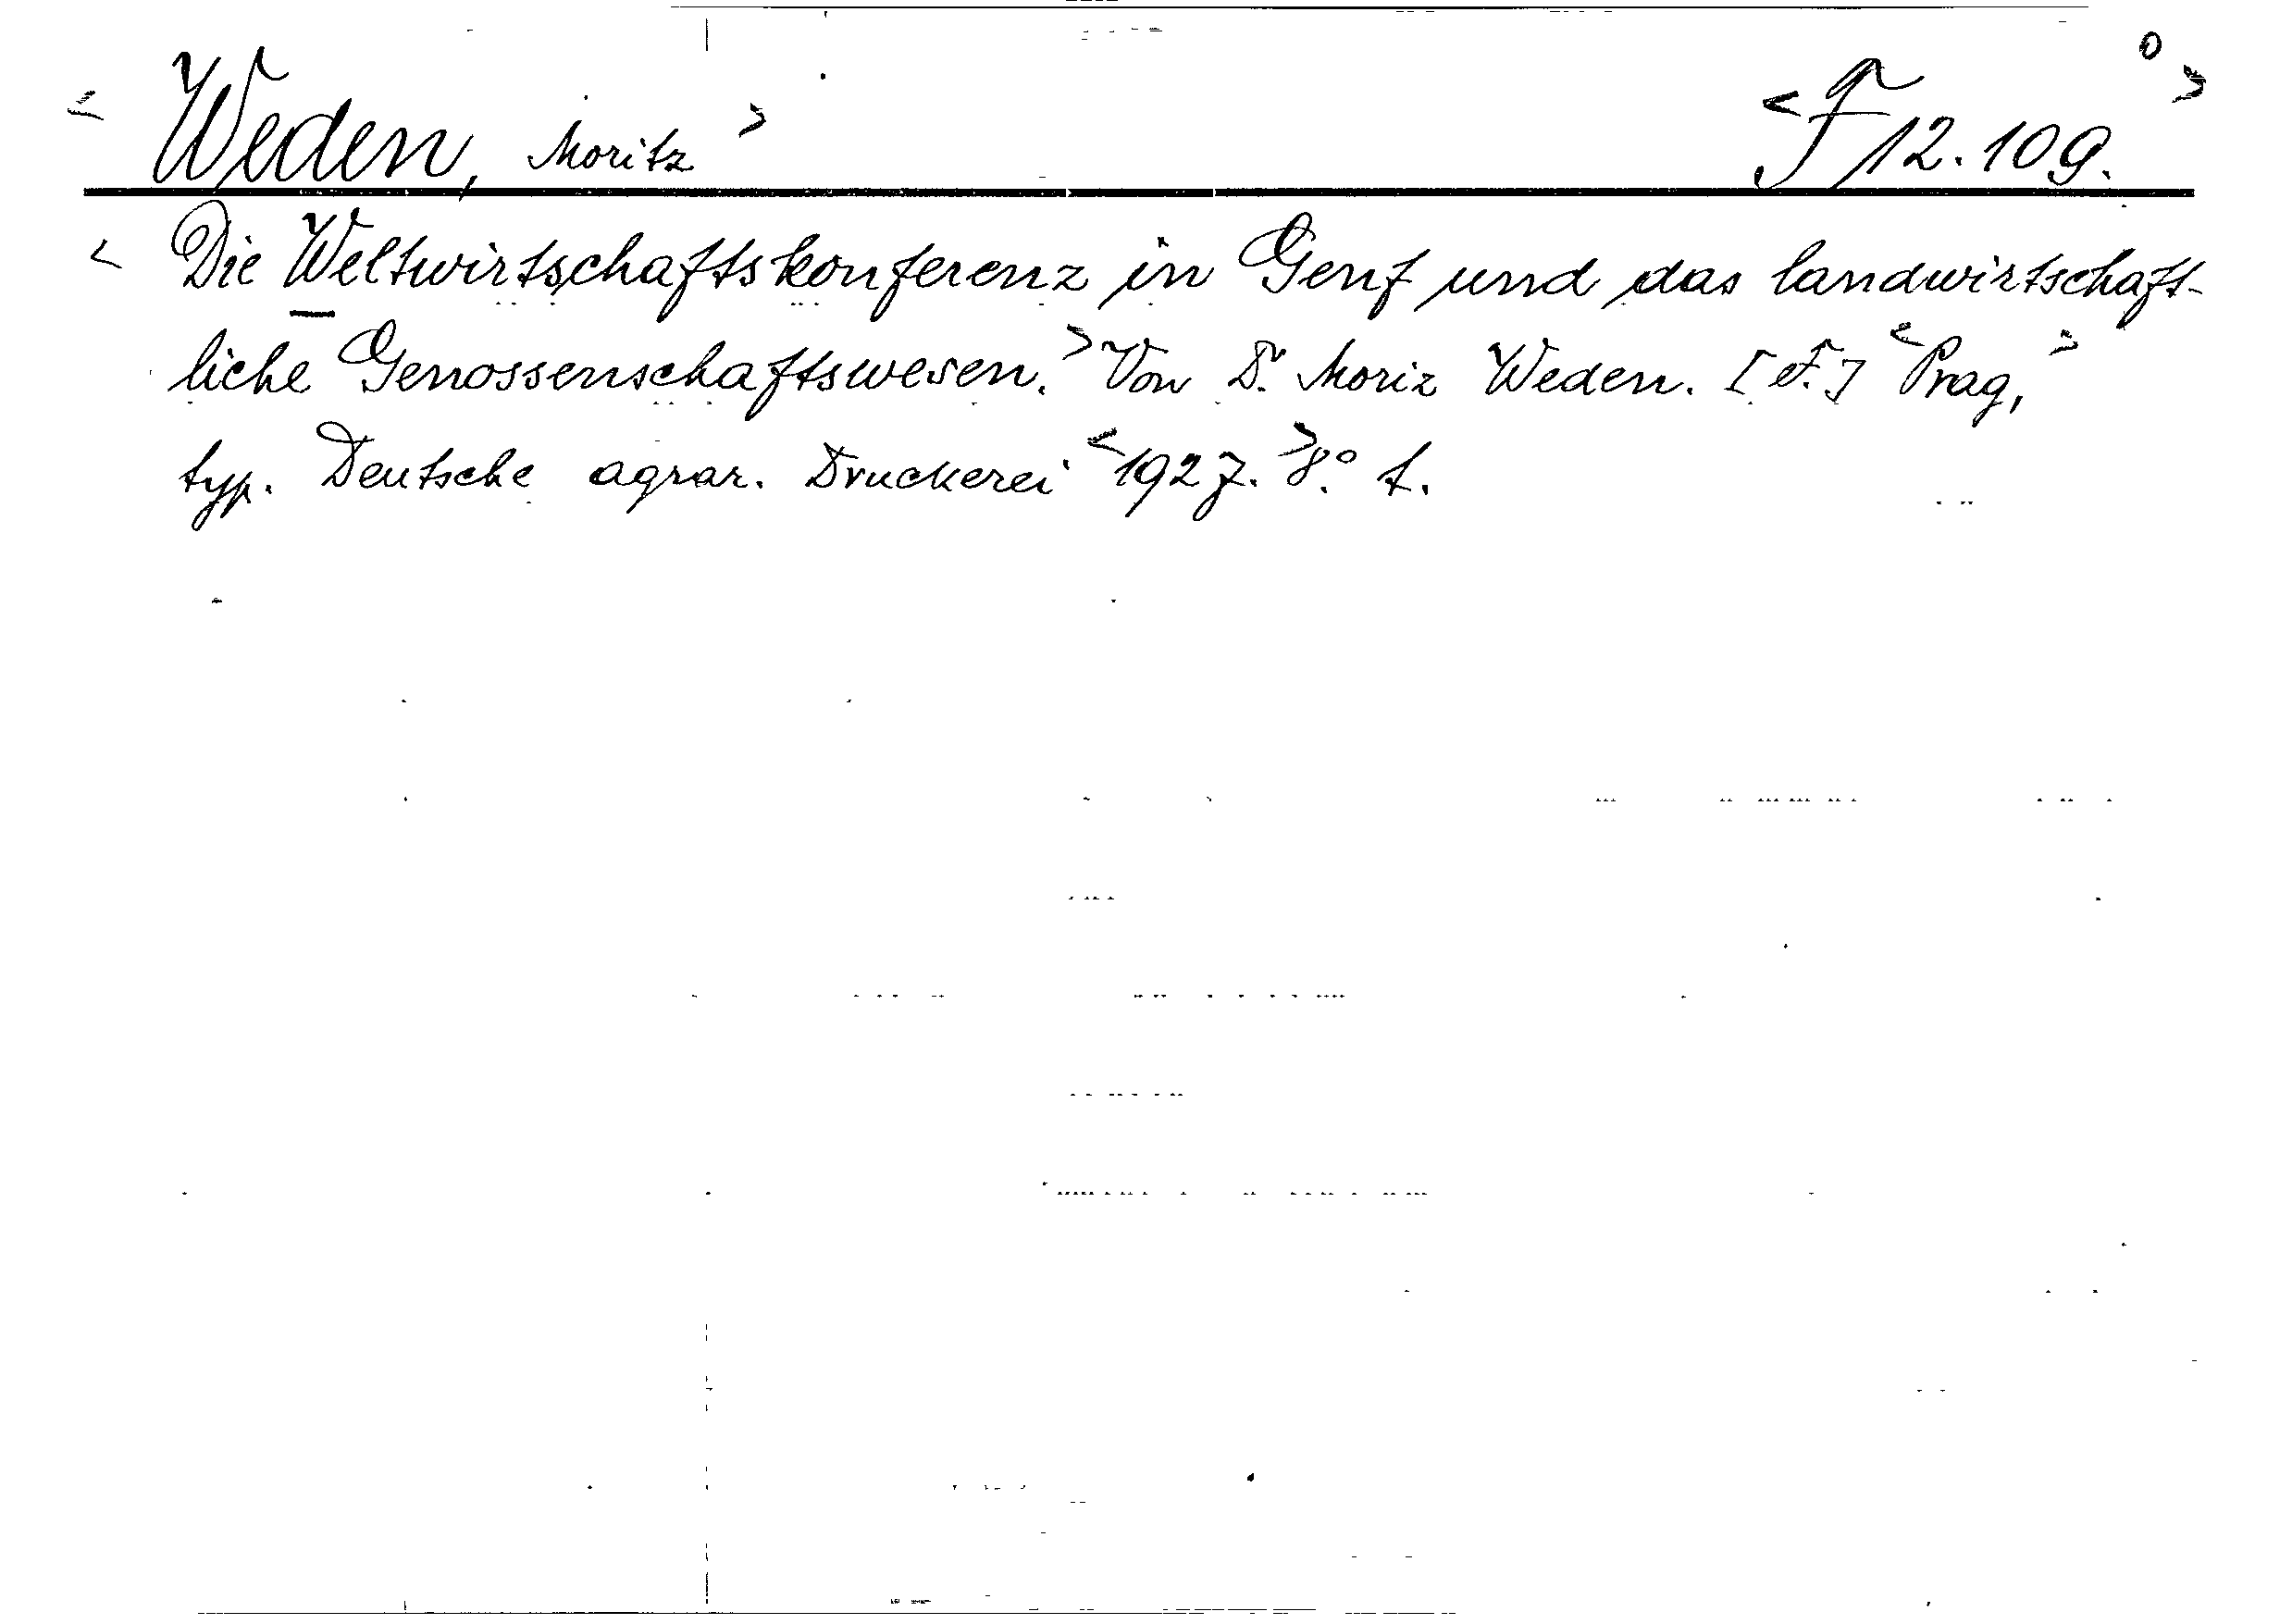 < Weden, Moritz > < F 12.109. ° >
< Die Weltwirtschaftskonferenz in Genf und das landwirtschaft-
liche Genossenschaftswesen. > Von Dr. Moriz Weden. [F.] < Prag, >
typ. Deutsche agrar. Druckerei < 1927. > 8.° f.